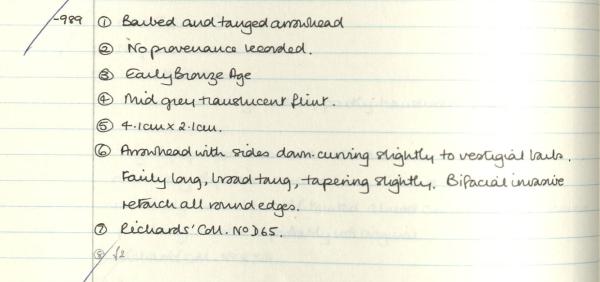 -989 ① Barbed and tanged arrowhead
② No provenance recorded.
③ Early Bronze Age
④ Mid grey translucent flint.
⑤ 4.1cm x 2.1cm.
⑥ Arrowhead with sides down-curving slightly to vestigial barbs.
Fairly long, broad tang, tapering slightly. Bifacial invasive
retouch all round edges.
⑦ Richards' Coll. No D65.
⑧ £2